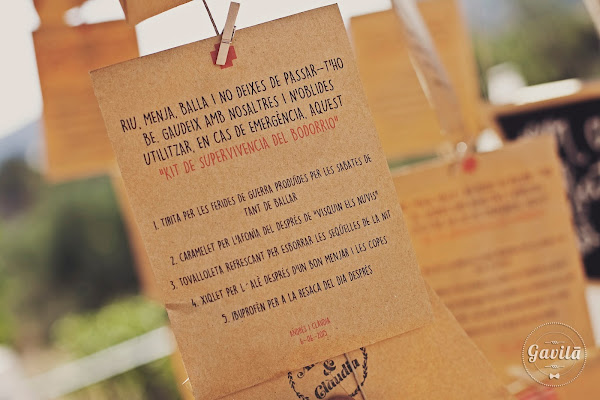 RIU, MENJA, BALLA I NO DEIXES DE PASSAR-T'HO
BE. GAUDEIX AMB NOSALTRES I N'OBLIDES
UTILITZAR, EN CAS DE EMERGÈNCIA, AQUEST
"KIT DE SUPERVIVENCIA DEL BODORRIO"
1. TIRITA PER LES FERIDES DE GUERRA PRODUÏDES PER LES SABATES DE
TANT DE BALLAR
2. CARAMELET PER L'AFONÍA DEL DESPRÉS DE "VISQUIN ELS NUVIS"
3. TOVALLOLETA REFRESCANT PER ESBORRAR LES SEQÜELLES DE LA NIT
4. XIQLET PER L'ALÈ DESPRÉS D'UN BON MENJAR I LES COPES
5. IBUPROFÈN PER A LA RESACA DEL DIA DESPRÉS
ANDREU I CLAUDIA
& Claudia
Gavilā